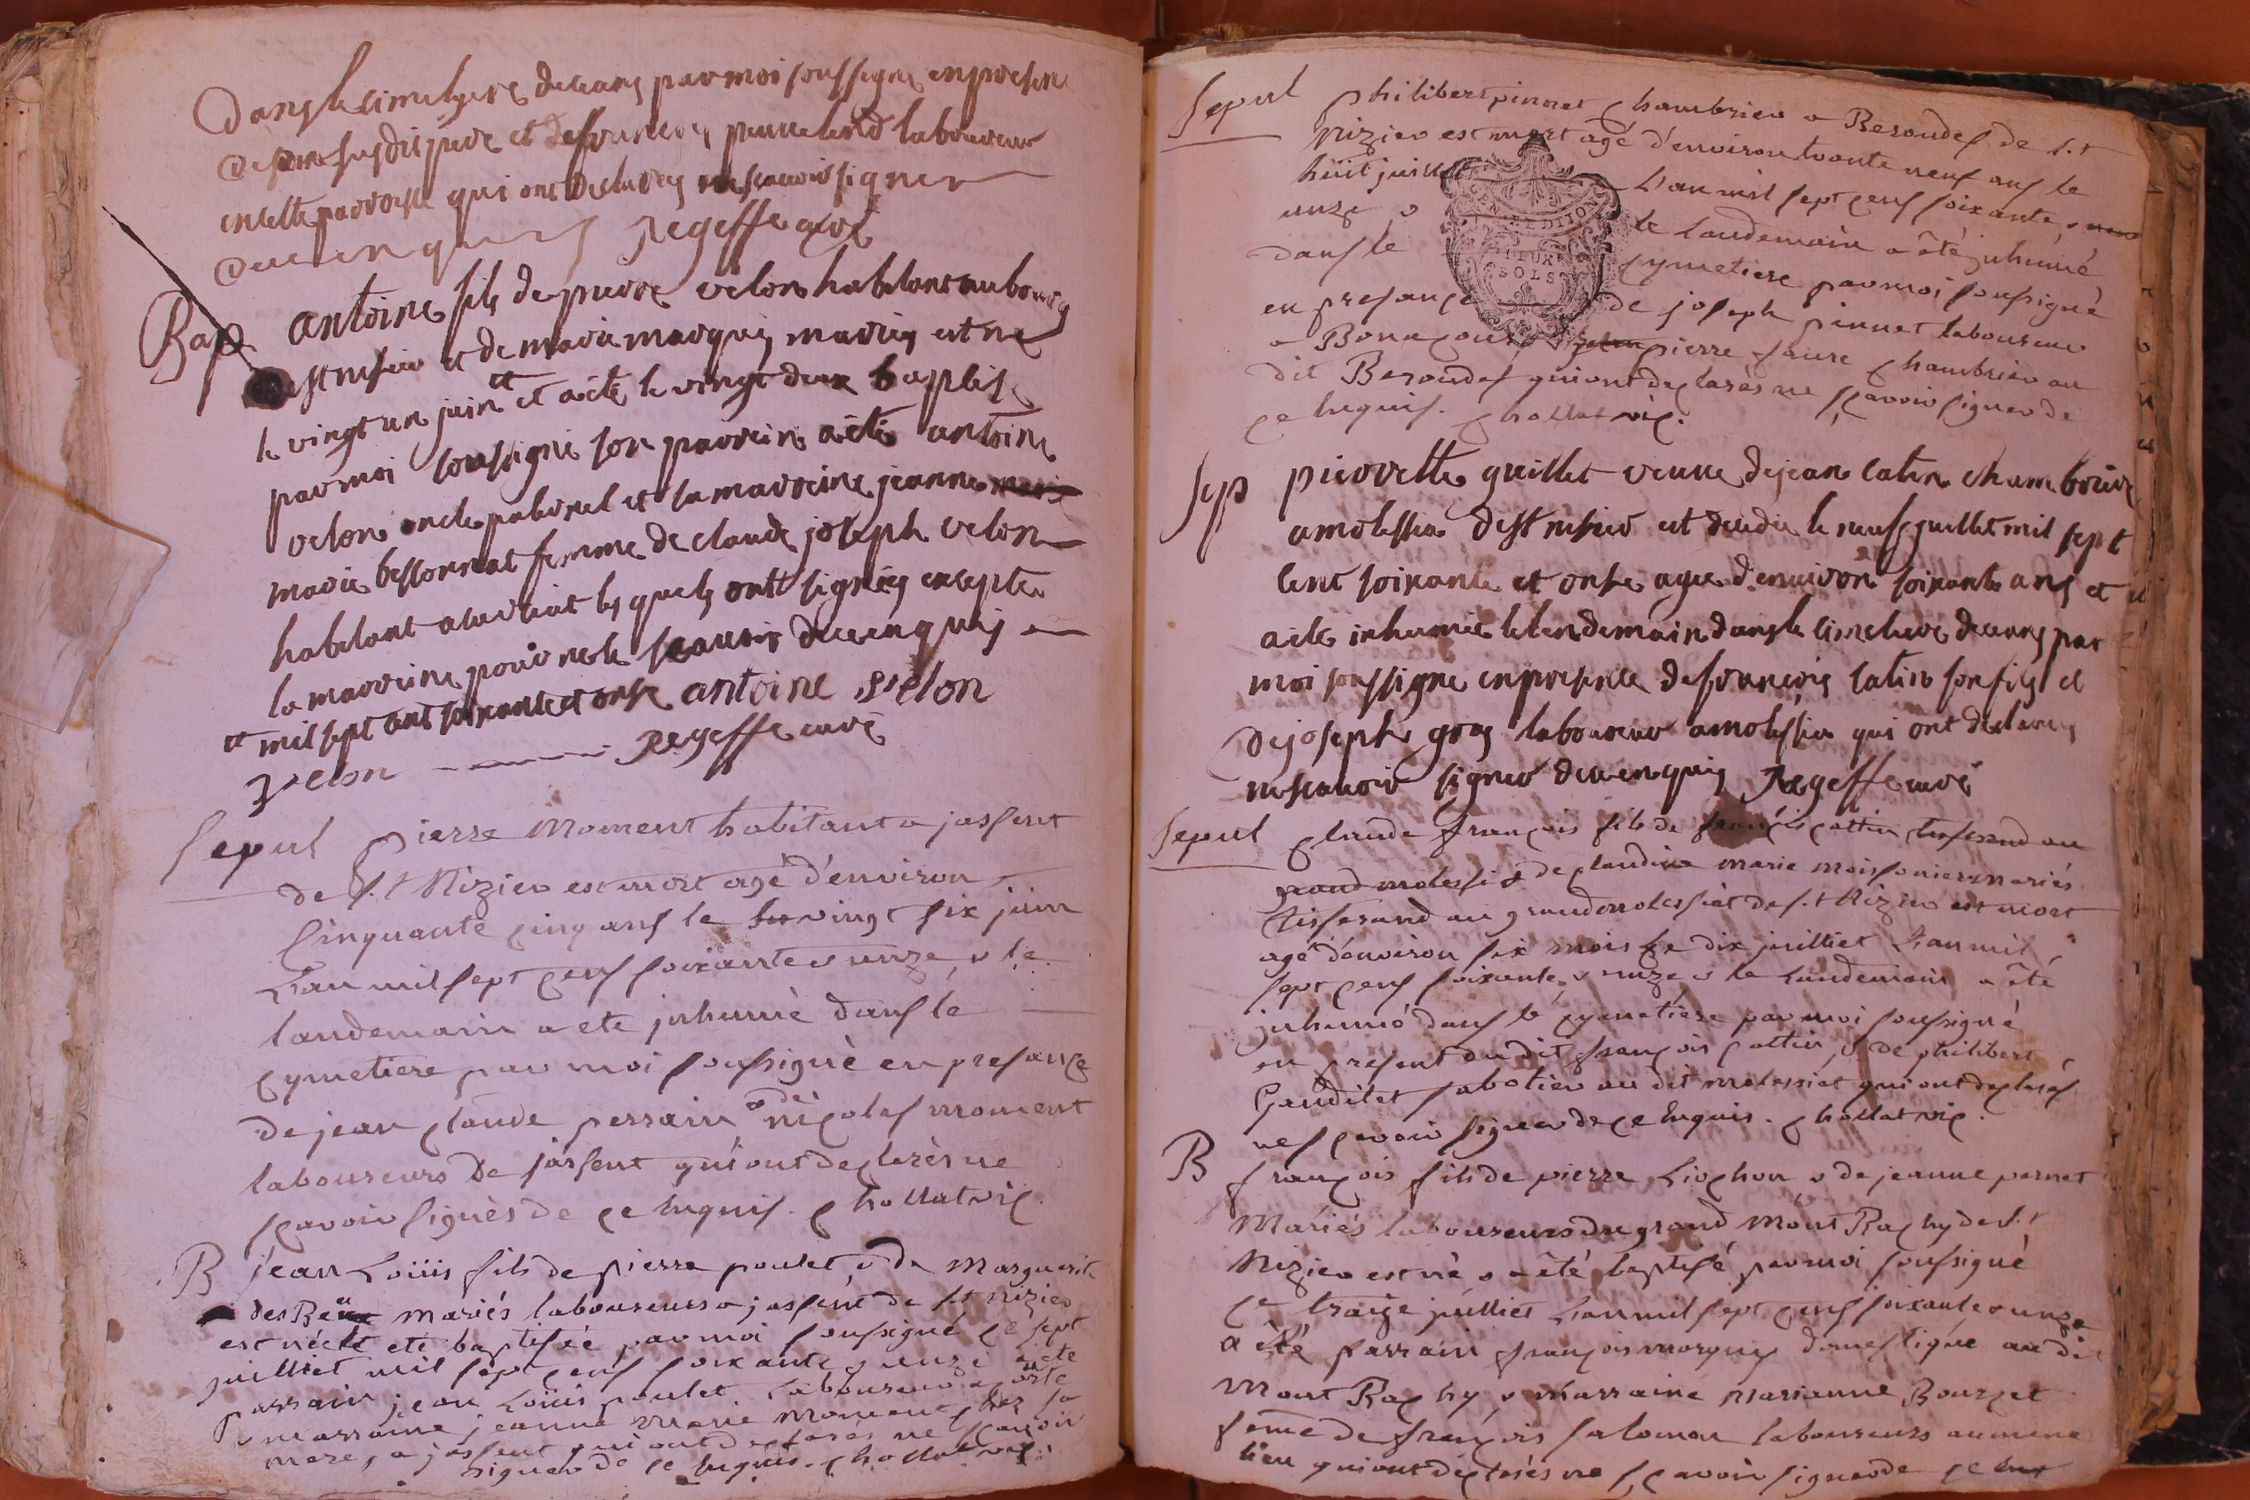 dans le cimetyere deceans par moi soussigne en presen
de son susdit pere et de francois peuvelend laboureur
en cette parroisse qui ont declarés ne scavoir signer
de ce enquis Regeffe curé
Bap antoine fils de pierre velon habitant au bourg
de st nisier et de marie marquis mariés est né
le vingt un juin et a été le vingt deux baptisé
par moi soussigné son parrein a été antoine
velon oncle paternel et sa marreine jeanne
marie bessonnat femme de claude joseph velon
habitant a les quels ont signés excepté
la marreine pour ne le scauoir de ce enquis
mil sept cent soixante et onse antoine velon
velon Regeffe curé
Sepul pierre Moment habitant a jassent
de s.t Nizier est mort agé d'environ
Cinquante cinq ans le vingt six juin
L'an mil sept cens soixante & unze, & le
landemain a ete inhumè dans le
cymetiere par moi soussigné en presance
de jean claude perrain & de nicolas moment
laboureurs de jassent qui ont declarès ne
scavoir signès de ce enquis. chollat vic.
B jean Loüis fils de pierre poulet & de Marguerit
des Beau mariés laboureurs a jassent de st nizier
est né et ete baptisée par moi soussigné ce sept
juilliet mil sept cens soixante & unze a ete
parrain jean Loüis poulet laboureur a
& marraine jeanne marie Moment chez sa
mere, a jassent qui ont declarés ne scavoir
signer de ce enquis. chollat vic.
Sepul philibert pinnet chambrier a Beroudes de s.t
Nizier est mort agé d'environ trante neuf ans le
huit juillet L'an mil sept cens soixante &
unze & le landemain a été inhumé
dans le cymetiere par moi soussigné
en presance de joseph pinnet laboureur
a Bonacour & pierre faure chambrier au
dit Beroudes qui ont declarès ne scavoir signer de
ce enquis. chollat vic.
EN REDITION DEUX SOLS
Sep pierrette guillet veuve de jean catin chambrier
a molessia de st nisier est decedée le neuf juillet mil sept
cent soixante et onse agée d'environ soixante ans et
a été inhumée le lendemain dans le cimetiere deceans par
moi soussigné en presence de francois catin son fils et
de joseph gros laboureur a molessia qui ont declarés
ne scauoir signer de ce enquis Regeffe curé
Sepul claude françois fils de françois cattin tisserand au
grand molessia & de claudine marie moissonier mariés
tisserand au grand molessiat de s.t Nizier est mort
agé d'environ six mois le dix juilliet L'an mil
sept cens soixante & unze & le landemain a été
inhumé dans le cymetiere par moi soussigné
en present du dit françois cattin, & de philibert
Gauditet sabotier au dit molessiat qui ont declarés
ne scavoir signer de ce enquis. chollat vic.
B françois fils de pierre Liochon & de jeanne pernet
Mariés laboureurs du grand Mont Rachy de s.t
Nizier est né & a été baptisé par moi soussigné
ce traize juilliet L'an mil sept cens soixante & unze
a été parrain françois morguy domestique au dit
Mont Rachy, & marraine marianne Bourget
feme de françois salomon laboureurs au meme
lieu qui ont declarés ne scavoir signer de ce